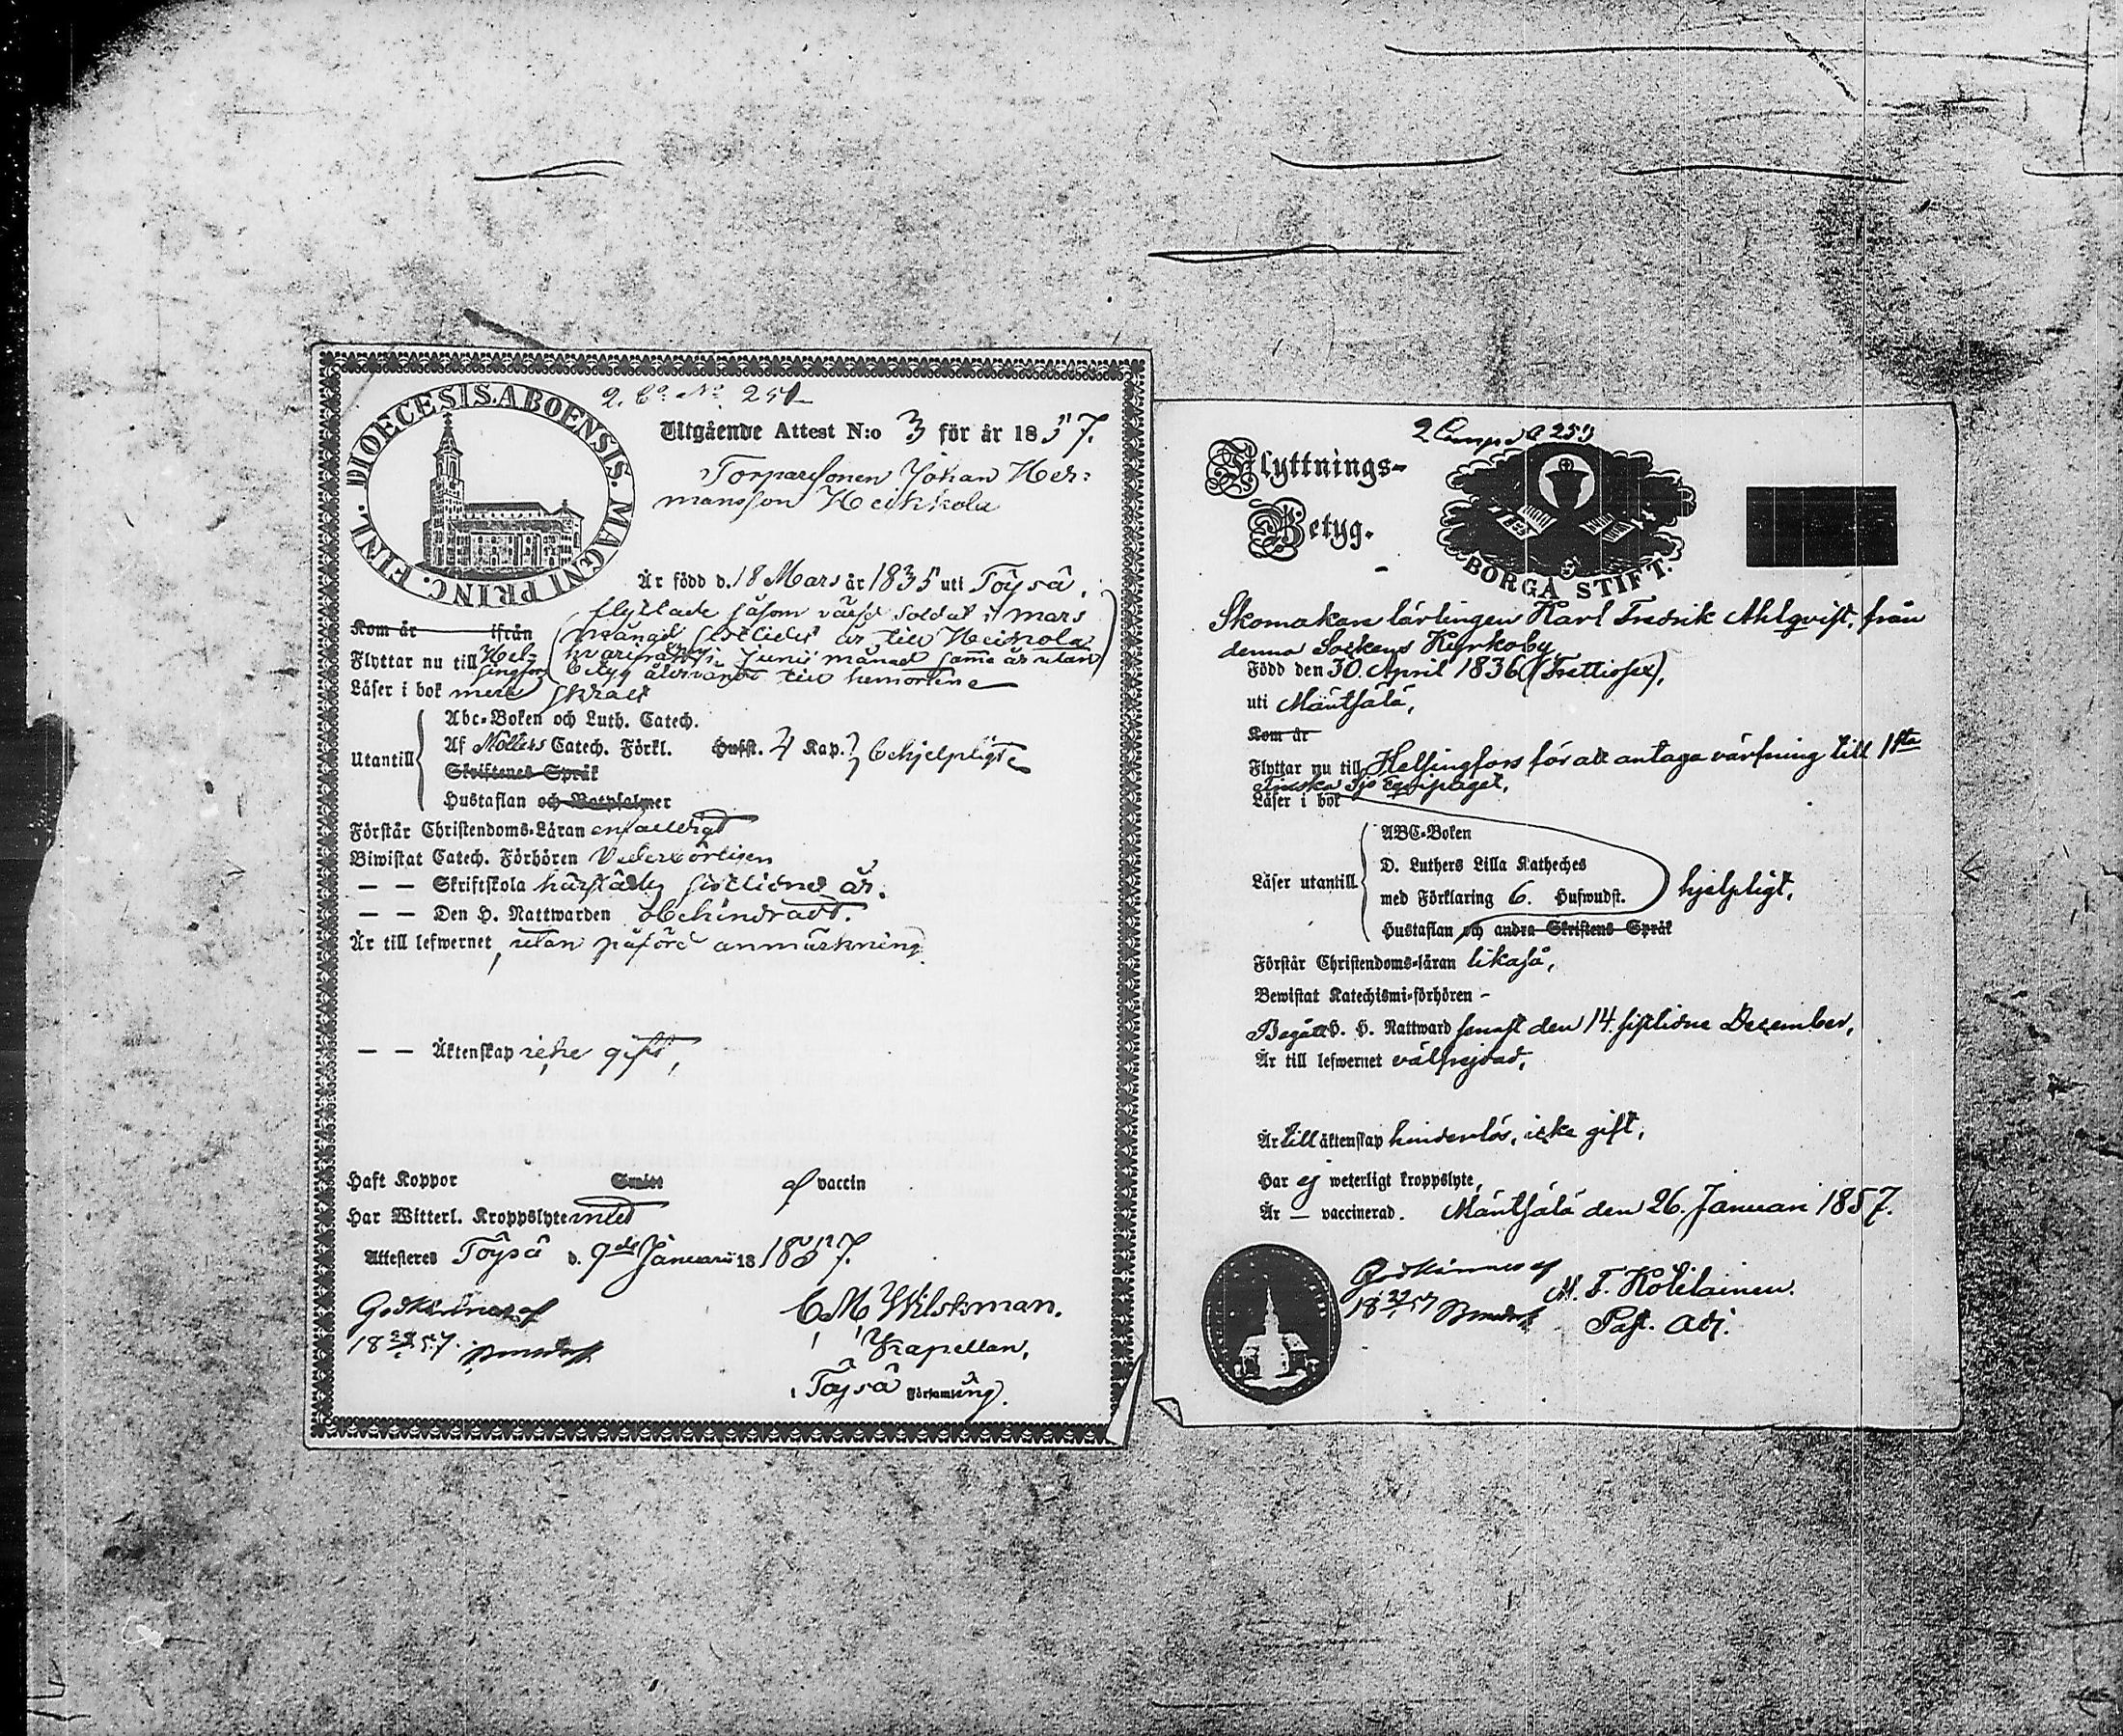 DIOECESIS ABOENSIS. MAGNI PRINC. FINL.
2. Co. No. 251
Utgående Attest N:o 3 för år 1857.
Torparsonen Johan Her-
mansson Heikkola
Är född d. 18 Mars år 1835 uti Töysä.
flyttade såsom värfd soldat i mars
Kom år ifrån
månad sistlidet år till Heikola
Flyttar nu till Hel-
singfors
hvarifrån i Junii månad samma år utan
betyg till hemorten
Läser i bok mera svalt
Abc-Boken och Luth. Catech.
Utantill
Af Möllers Catech. Förkl. Hufst. 4 Kap. behjelpligt
Skriftenes Språk
Hustaflan och Botpsalmer
Förstår Christendoms-Läran enfaldigt
Biwistat Catech. Förhören Vederbörligen
— — Skriftskola härstädes sistlidne år.
— — Den H. Nattwarden obehindradt.
Är till lefwernet, utan påförd anmärkning.
— — Äktenskap icke gift,
Haft Koppor Smitt af vaccin
Har Witterl. Kroppslyte intet
Attesteres Töysä d. 9de Januari 18 1857.
Godkännes af
18 57.
C. M. Wilskman.
Kapellan,
i Töysä Församling.
2 Comp No 253
Flyttnings-
Betyg.
BORGÅ STIFT.
Skomakare lärlingen Karl Fredrik Ahlqvist, från
denna Sockens Kyrkoby
Född den 30. April 1836 (Trettiosex),
uti Mäntsälä,
Kom år
Flyttar nu till Helsingfors för att antaga värfning till 1sta
Finska Sjö Equipaget.
Läser i bok
ABC-Boken
D. Luthers Lilla Katheches
Läser utantill
med Förklaring 6. Hufwudst. hjelpligt.
Hustaflan och andra Skriftens Språk
Förstår Christendoms-läran likaså,
Bewistat Katechismi-förhören -
Begått H. H. Nattward senast den 14. sistlidne December,
Är till lefwernet välfrejdad,
Är till äktenskap hinderlös, icke gift,
Har ej weterligt kroppslyte,
Är — vaccinerad. Mäntsälä den 26. Januari 1857.
Godkännes af
18 57
M. F. Kotilainen.
Past. Adj.